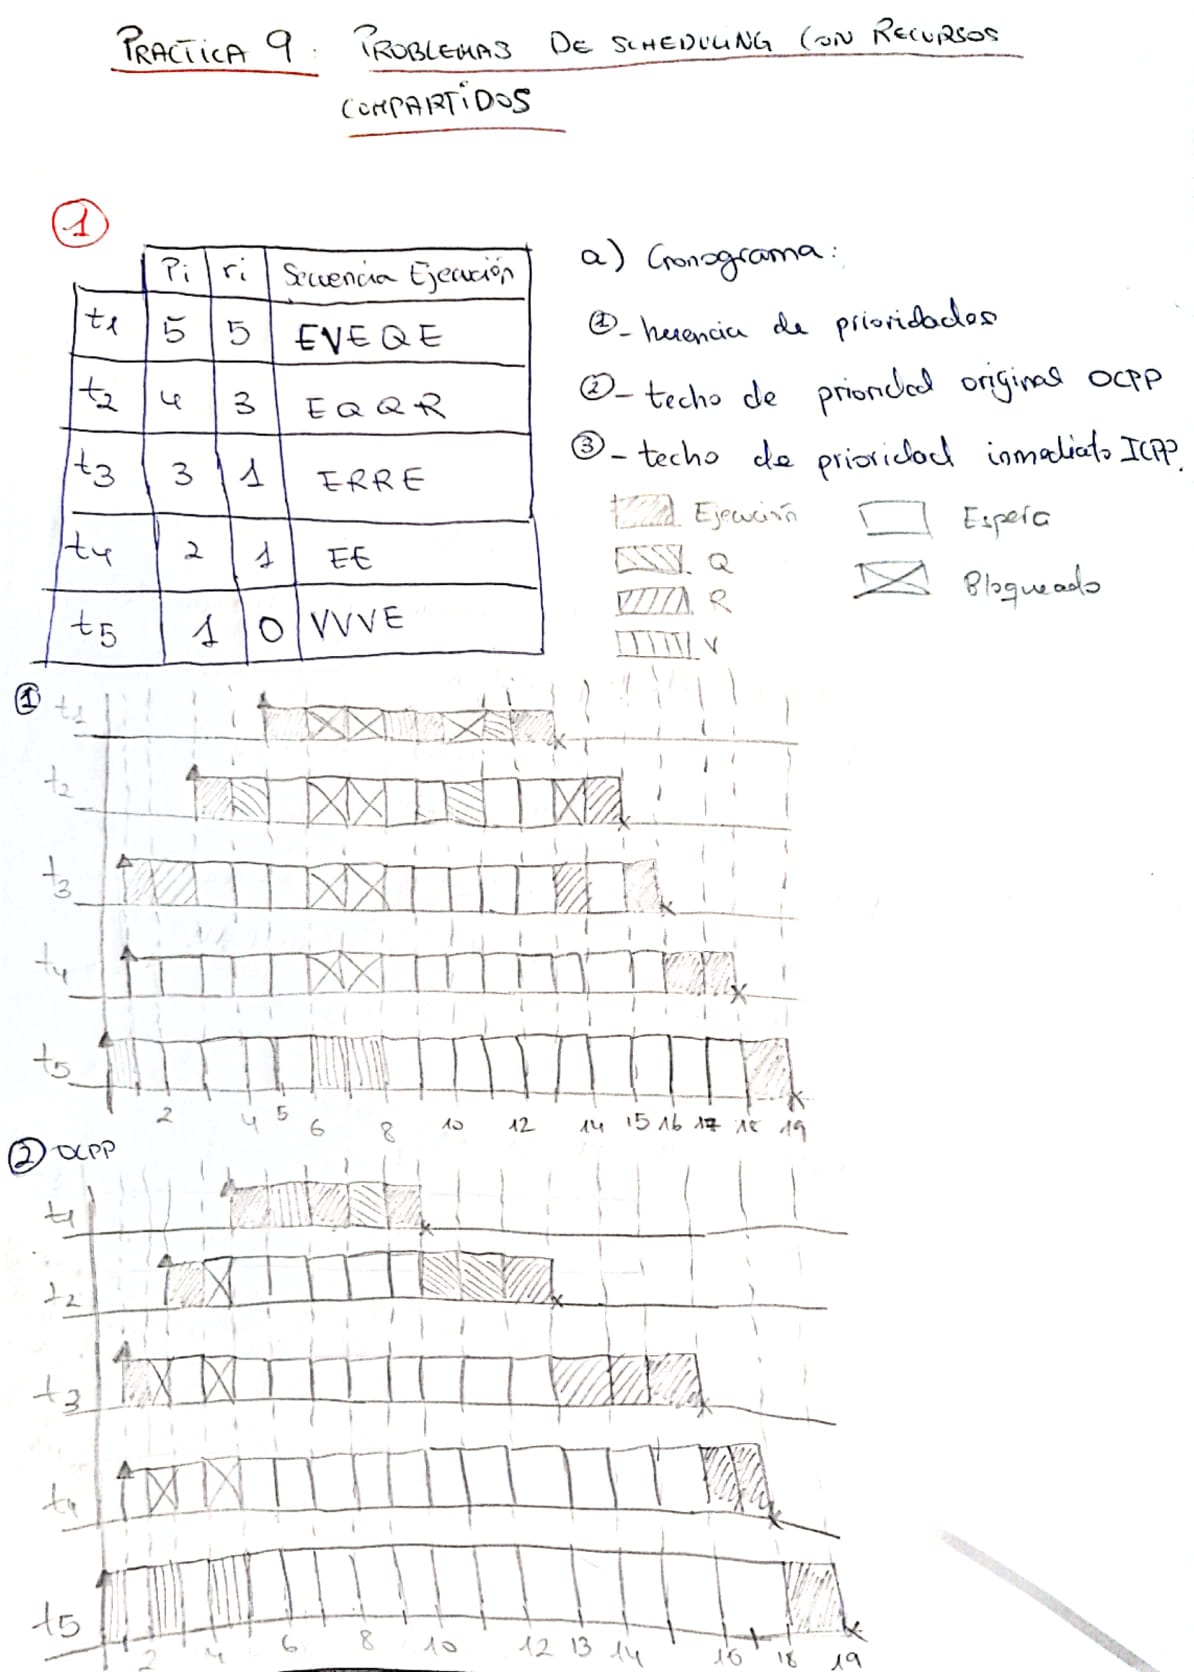 PRACTICA 9: PROBLEMAS DE SCHEDULING CON RECURSOS
COMPARTIDOS
1
Pi ri Secuencia Ejecución
t1 5 5 EVEQE
t2 4 3 EQQR
t3 3 1 ERRE
t4 2 1 EE
t5 1 0 VVVE
a) Cronograma:
1- herencia de prioridades
2- techo de prioridad original OCPP
3- techo de prioridad inmediato ICPP.
Ejecución
Espera
Q
Bloqueado
R
V
1
t1
t2
t3
t4
t5
2 4 5 6 8 10 12 14 15 16 17 18 19
2 OCPP
t1
t2
t3
t4
t5
2 4 6 8 10 12 13 14 16 18 19